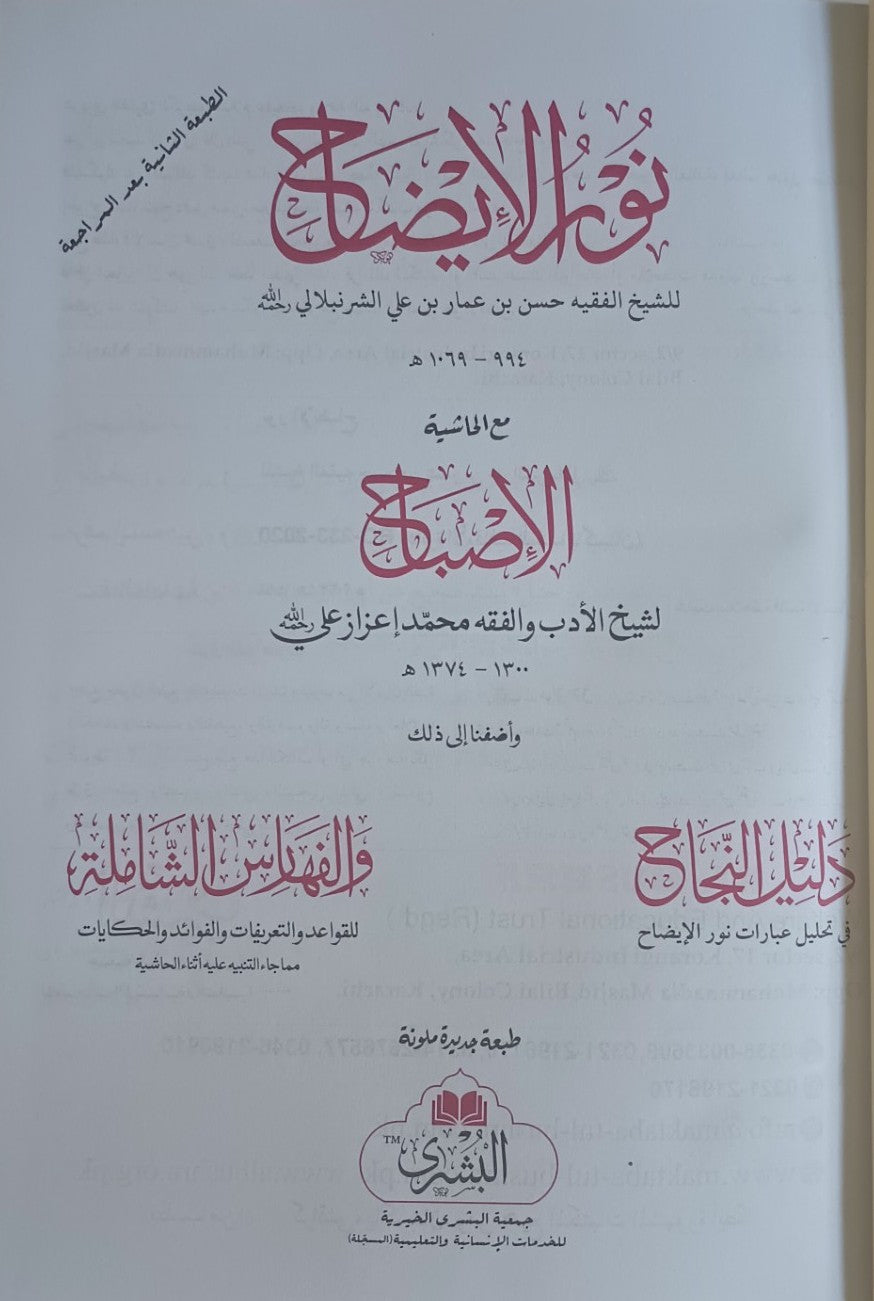 الطبعة الثانية بعد المراجعة
نُوْرُ الْإِيْضَاحِ
للشيخ الفقيه حسن بن عمار بن علي الشرنبلالي رحمه الله
٩٩٤ – ١٠٦٩ هـ
مع الحاشية
الْإِصْبَاحِ
لشيخ الأدب والفقه محمّد إعزاز علي رحمه الله
١٣٠٠ – ١٣٧٤ هـ
وأضفنا إلى ذلك
دَلِيْلُ النَّجَاحِ
في تحليل عبارات نور الإيضاح
وَالْفَهَارِسِ الشَّامِلَةِ
للقواعد والتعريفات والفوائد والحكايات
مما جاء التنبيه عليه أثناء الحاشية
طبعة جديدة ملونة
البُشْرٰى TM
جمعية البشرى الخيرية
للخدمات الإنسانية والتعليمية (المسجّلة)